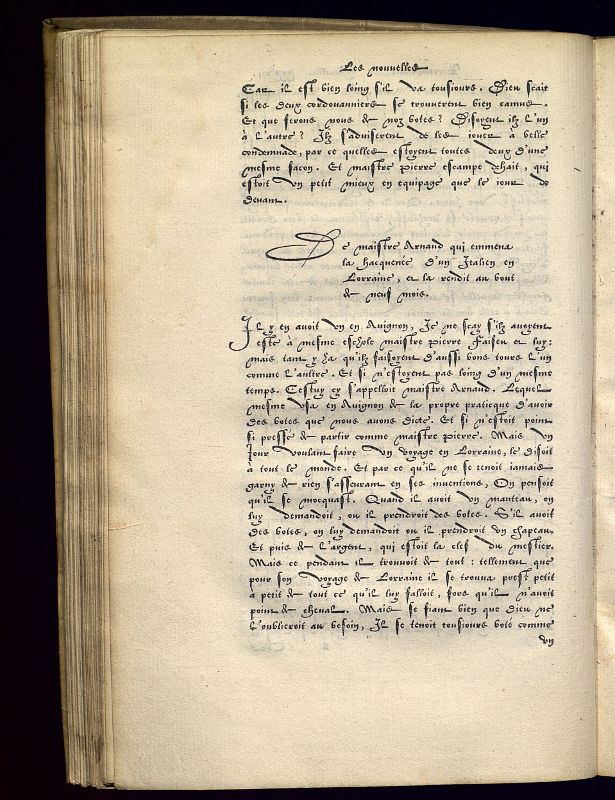 Les nouuelles
Car il est bien loing s'il va tousiours. Dieu scait
si les deux cordouanniers se trouuerent bien camus.
Et que ferons nous de noz botes? Disoyent ilz l'un
à l'autre? Ilz s'aduiserent de les iouer à belle
condemnade, par ce quelles estoyent toutes deux d'une
mesme façon. Et maistre pierre escampe dhait, qui
estoit vn petit mieux en equipage que le iour de
deuant.
De maistre Arnaud qui emmena
la hacquenée d'un Italien en
Lorraine, et la rendit au bout
de neuf mois.
Il y en auoit vn en Auignon, Ie ne scay s'ilz auoyent
esté à mesme eschole maistre pierre Faifeu et luy:
mais tant y ha qu'ilz faisoyent d'aussi bons tours l'un
comme l'aultre. Et si n'estoyent pas loing d'un mesme
temps. Cestuy cy s'appelloit maistre Arnaud. Lequel
mesme vsa en Auignon de la propre praticque d'auoir
des botes que nous auons dicte. Et si n'estoit point
si pressé de partir comme maistre pierre. Mais vn
Iour voulant faire vn voyage en Lorraine, le disoit
à tout le monde. Et par ce qu'il ne se tenoit iamais
garny de rien s'asseurant en ses inuentions, On pensoit
qu'il se mocquast. Quand il auoit vn manteau, on
luy demandoit, ou il prendroit des botes. S'il auoit
des botes, on luy demandoit ou il prendroit vn chapeau
Et puis de l'argent, qui estoit la clef du mestier.
Mais ce pendant il trouuoit de tout: tellement que
pour son voyage de Lorraine il se trouua prest petit
à petit de tout ce qu'il luy falloit, fors qu'il n'auoit
point de cheual. Mais se fiant bien que Dieu ne
l'oublieroit au besoin, Il se tenoit tousiours boté comme
vn